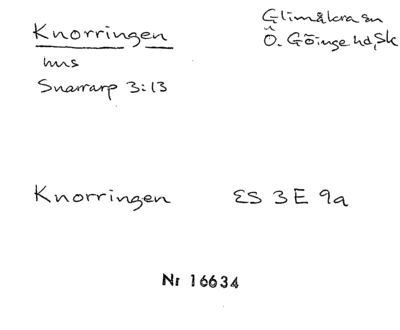 Knorringen
hus
Snararp 3:13
Glimåkra sn
Ö. Göinge hd, Sk
Knorringen ES 3E 9a
Nr 16634